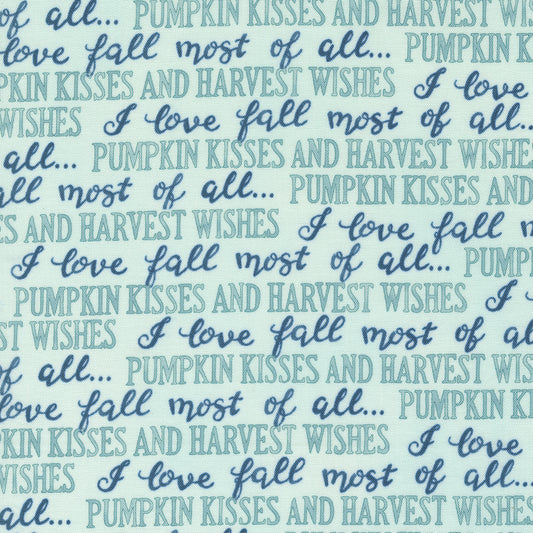 of all... PUMPKIN KISSES AND HARVEST WIS
love fall most of all... PUMPKIN K
PKIN KISSES AND HARVEST WISHES I love
WISHES I love fall most of all...
all... PUMPKIN KISSES AND HARVEST WISHE
all most of all... PUMPKIN KISSES AND
ES AND HARVEST WISHES I love fall m
I love fall most of all... PUMP
PUMPKIN KISSES AND HARVEST WISHES I
ST WISHES I love fall most of al
of all... PUMPKIN KISSES AND HARVEST WIS
love fall most of all... PUMPKIN
KIN KISSES AND HARVEST WISHES I love
WISHES I love fall most of all...
all... PUMPKIN KISSES AND HARVEST WISHES